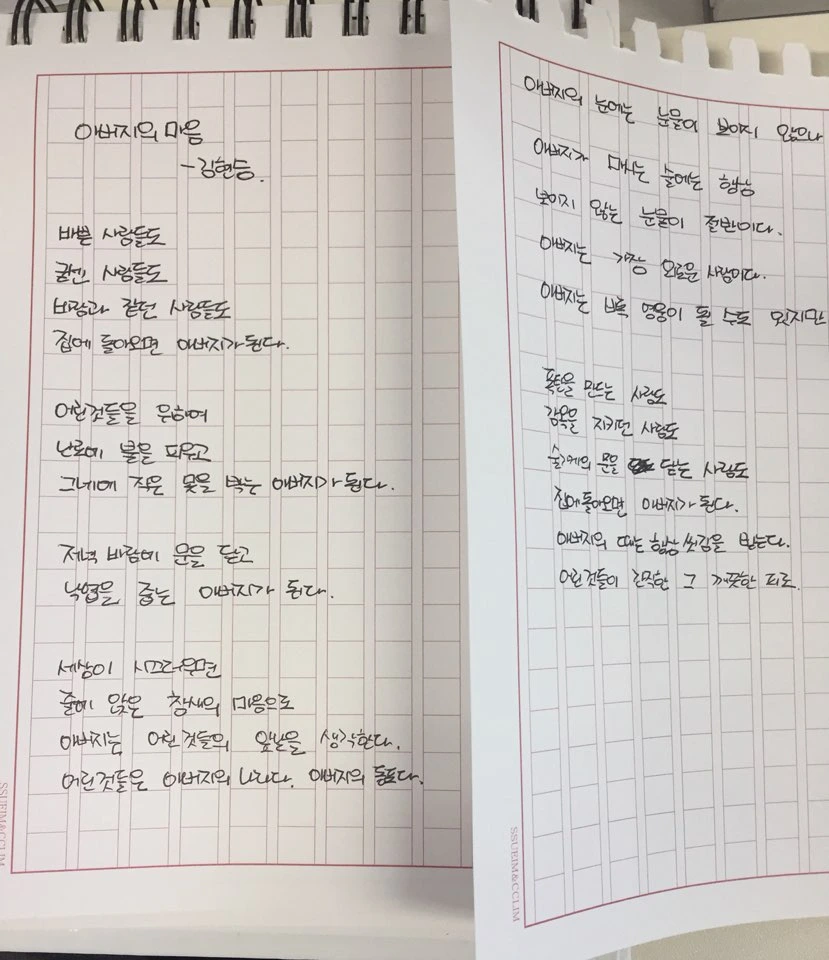 아버지의 마음
-김현등.
바쁜 사람들도
굳센 사람들도
바람과 같던 사람들도
집에 돌아오면 아버지가 된다.
어린것들을 위하여
난로에 불을 피우고
그네에 작은 못을 박는 아버지가 된다.
저녁 바람에 문을 닫고
낙엽을 줍는 아버지가 된다.
세상이 시끄러우면
줄에 앉은 참새의 마음으로
아버지는 어린것들의 앞날을 생각한다.
어린것들은 아버지의 나라다. 아버지의 동포다.
아버지의 눈에는 눈물이 보이지 않으나
아버지가 마시는 술에는 항상
보이지 않는 눈물이 절반이다.
아버지는 가장 외로운 사람이다.
아버지는 비록 영웅이 될 수도 있지만
폭탄을 만드는 사람도
감옥을 지키던 사람도
술가게의 문을 닫는 사람도
집에 돌아오면 아버지가 된다.
아버지의 때는 항상 씻김을 받는다.
어린것들이 간직한 그 깨끗한 피로.
SSUEIM&CCLIM
SSUEIM&CCLIM